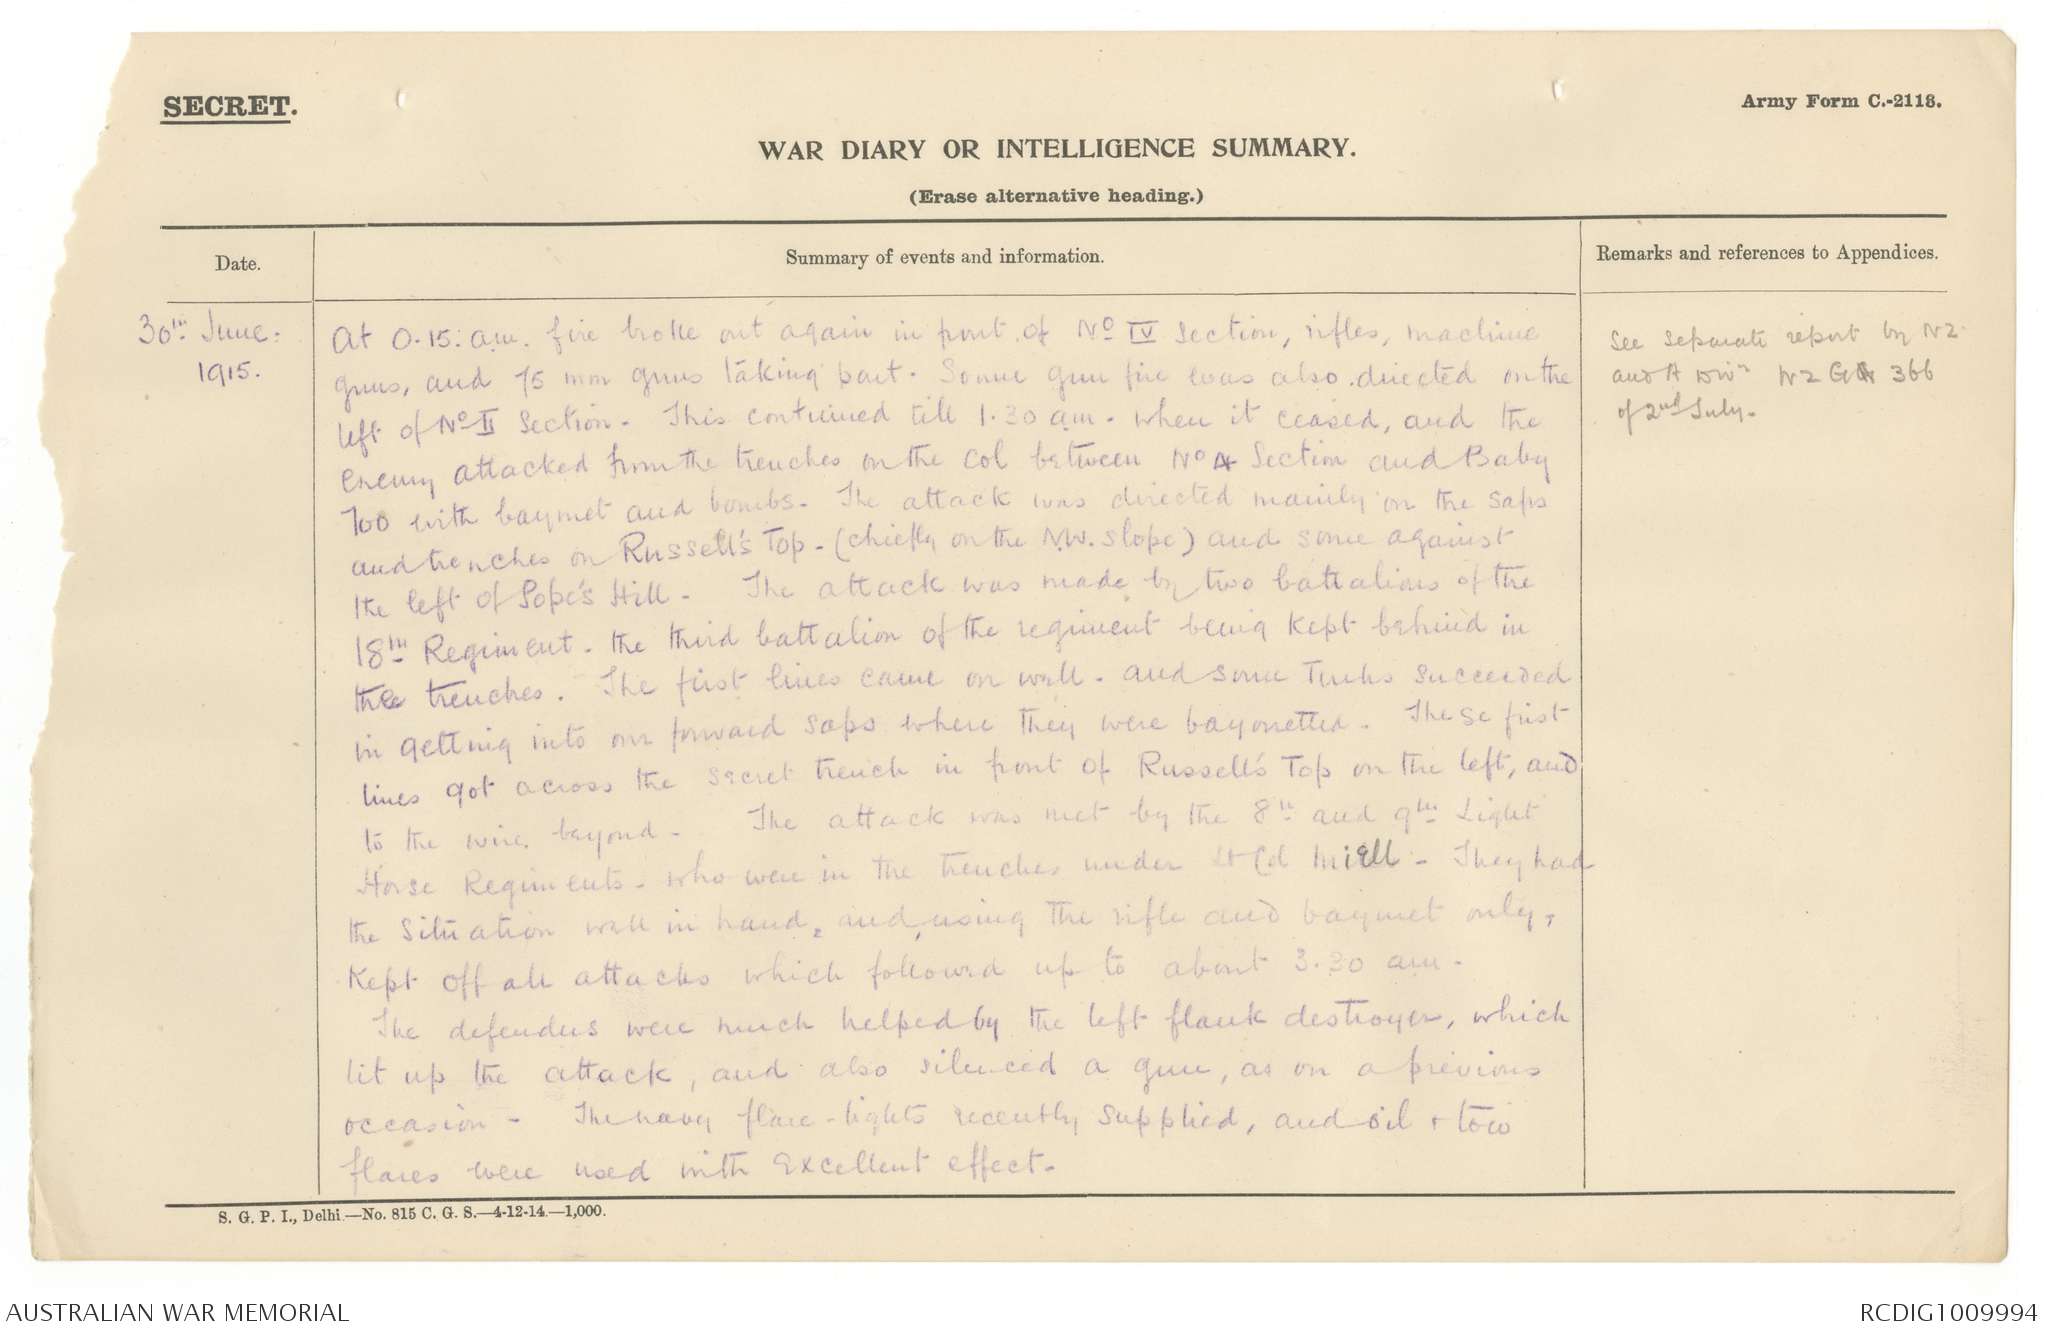 SECRET.
Army Form C.-2118.
WAR DIARY OR INTELLIGENCE SUMMARY.
(Erase alternative heading.)
Date.
Summary of events and information.
Remarks and references to Appendices.
30th June.
1915.
At 0.15. am. fire broke out again in front of No IV Section, rifles, machine
guns, and 75 mm guns taking part. Some gun fire was also directed on the
left of No II Section. This continued till 1.30 am. when it ceased, and the
enemy attacked from the trenches on the col between No 4 Section and Baby
700 with bayonet and bombs. The attack was directed mainly on the saps
and trenches on Russell's Top - (chiefly on the N.W. slope) and some against
the left of Pope's Hill. The attack was made by two battalions of the
18th Regiment - the third battalion of the regiment being kept behind in
the trenches. The first lines came on well - and some Turks succeeded
in getting into our forward saps where they were bayonetted. These first
lines got across the secret trench in front of Russell's Top on the left, and
to the wire beyond. The attack was met by the 8th and 9th Light
Horse Regiments - who were in the trenches under Lt Col Miell - They had
the situation well in hand, and, using the rifle and bayonet only,
kept off all attacks which followed up to about 3.30 am.
The defenders were much helped by the left flank destroyer, which
lit up the attack, and also silenced a gun, as on a previous
occasion - The navy flare-lights recently supplied, and oil & tow
flares were used with excellent effect.
See separate report by NZ
and A Divn NZ G 366
of 2nd July.
S. G. P. I., Delhi—No. 815 C. G. S.—4-12-14—1,000.
AUSTRALIAN WAR MEMORIAL
RCDIG1009994